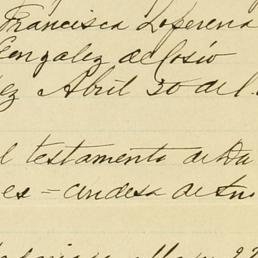 Francisca Loperena
Gonzalez de Cosio
ez Abril 30 de 1.
l testamento de Da
es = condesa de